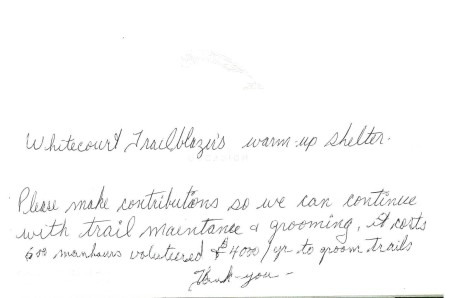 Whitecourt Trailblazer's warm-up shelter.
Please make contributions so we can continue
with trail maintance & grooming, it costs
600 manhours volunteered & $4000/yr to groom trails
Thank-you -